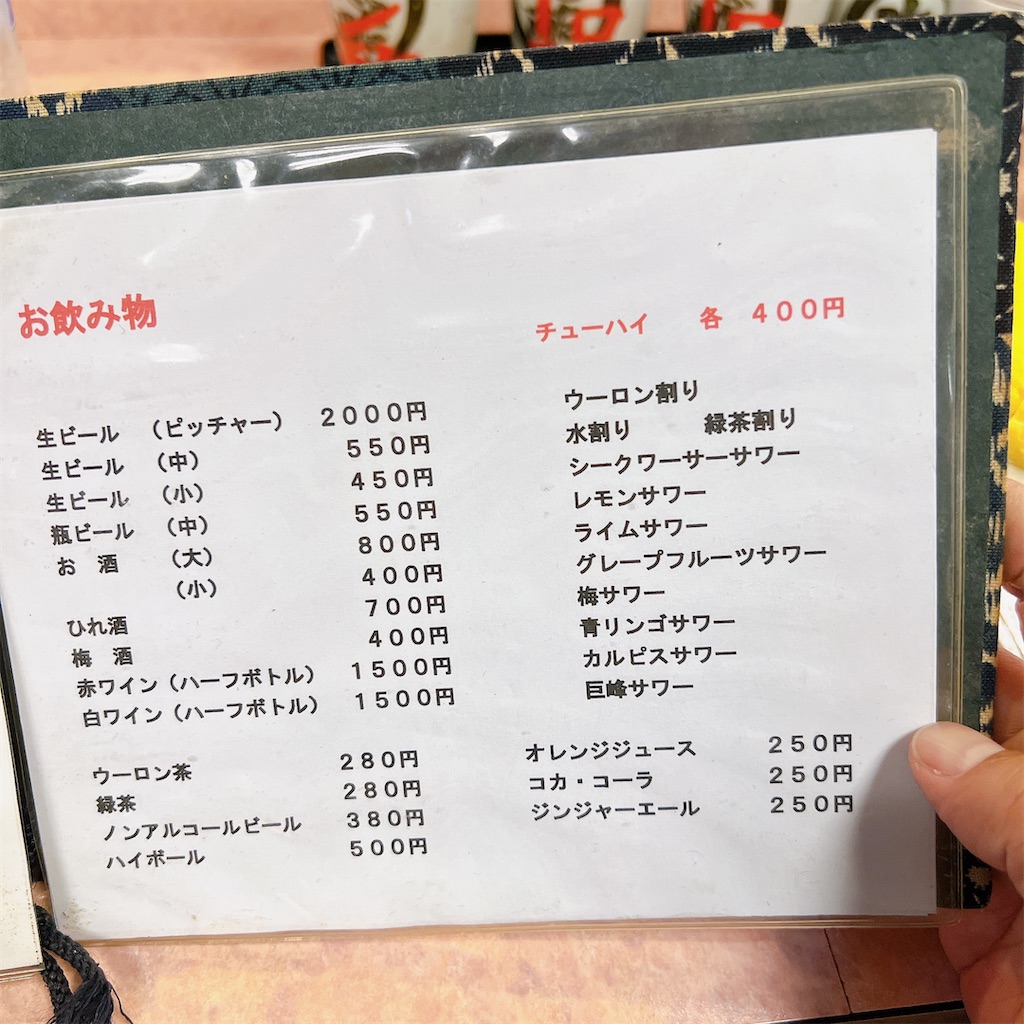 お飲み物
生ビール （ピッチャー） ２０００円
生ビール （中） ５５０円
生ビール （小） ４５０円
瓶ビール （中） ５５０円
お　酒 （大） ８００円
（小） ４００円
ひれ酒 ７００円
梅　酒 ４００円
赤ワイン（ハーフボトル） １５００円
白ワイン（ハーフボトル） １５００円
ウーロン茶 ２８０円
緑茶 ２８０円
ノンアルコールビール ３８０円
ハイボール ５００円
チューハイ　各　４００円
ウーロン割り
水割り　緑茶割り
シークワーサーサワー
レモンサワー
ライムサワー
グレープフルーツサワー
梅サワー
青リンゴサワー
カルピスサワー
巨峰サワー
オレンジジュース ２５０円
コカ・コーラ ２５０円
ジンジャーエール ２５０円